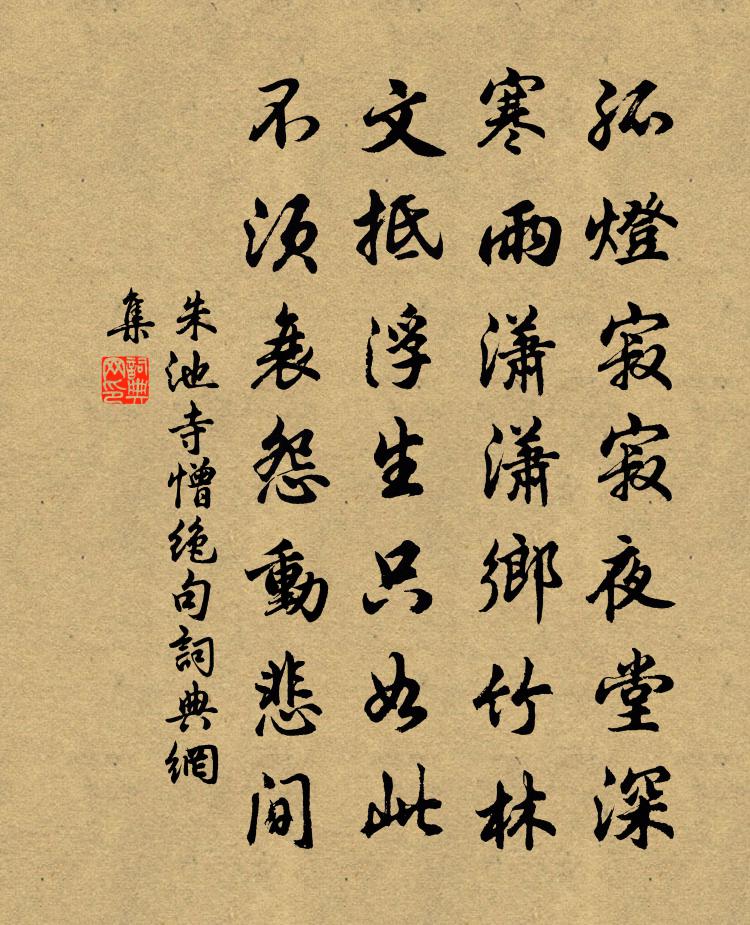 孤燈寂寂夜堂深
寒雨瀟瀟鄉竹林
文抵浮生只如此
不須哀怨動悲間
朱池寺憎絕句詞典網
集
詞典網印